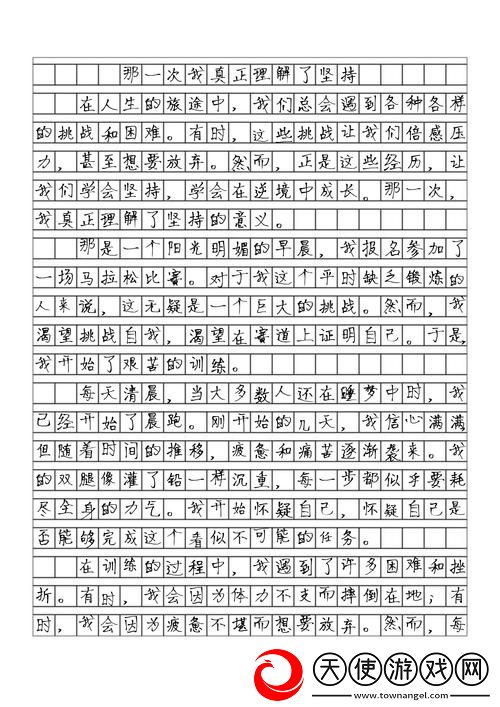 那一次我真正理解了坚持
在人生的旅途中，我们总会遇到各种各样
的挑战和困难。有时，这些挑战让我们倍感压
力，甚至想要放弃。然而，正是这些经历，让
我们学会坚持，学会在逆境中成长。那一次，
我真正理解了坚持的意义。
那是一个阳光明媚的早晨，我报名参加了
一场马拉松比赛。对于我这个平时缺乏锻炼的
人来说，这无疑是一个巨大的挑战。然而，我
渴望挑战自我，渴望在赛道上证明自己。于是，
我开始了艰苦的训练。
每天清晨，当大多数人还在睡梦中时，我
已经开始了晨跑。刚开始的几天，我信心满满，
但随着时间的推移，疲惫和痛苦逐渐袭来。我
的双腿像灌了铅一样沉重，每一步都似乎要耗
尽全身的力气。我开始怀疑自己，怀疑自己是
否能够完成这个看似不可能的任务。
在训练的过程中，我遇到了许多困难和挫
折。有时，我会因为体力不支而摔倒在地；有
时，我会因为疲惫不堪而想要放弃。然而，每
天使游戏网
www.townangel.com